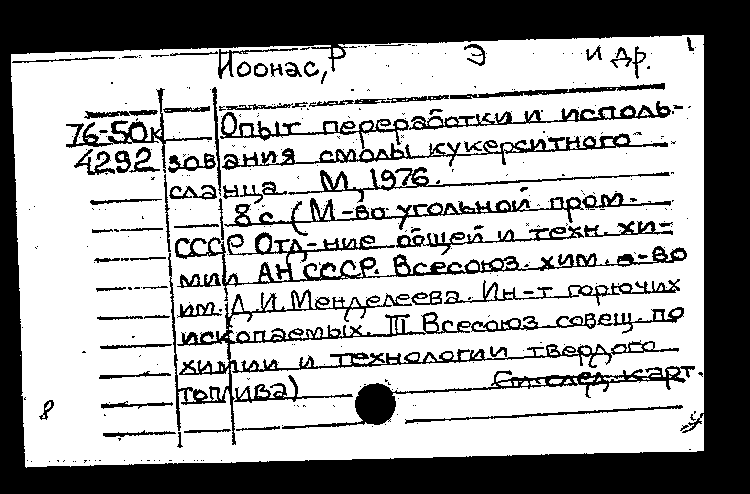 Йоонас, Р Э и др.
76-50к Опыт переработки и исполь-
4292 зования смолы кукерситного
сланца. М., 1976.
8 с. (М-во угольной пром.
СССР Отд-ние общей и техн. хи-
мии АН СССР. Всесоюз. хим. о-во
им. Д.И. Менделеева. Ин-т горючих
ископаемых. III Всесоюз. совещ. по
химии и технологии твердого
топлива)
См.след.карт.
8